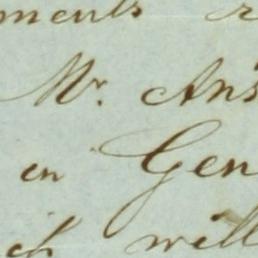 ments
Mr. Ans
in Gen
ich will